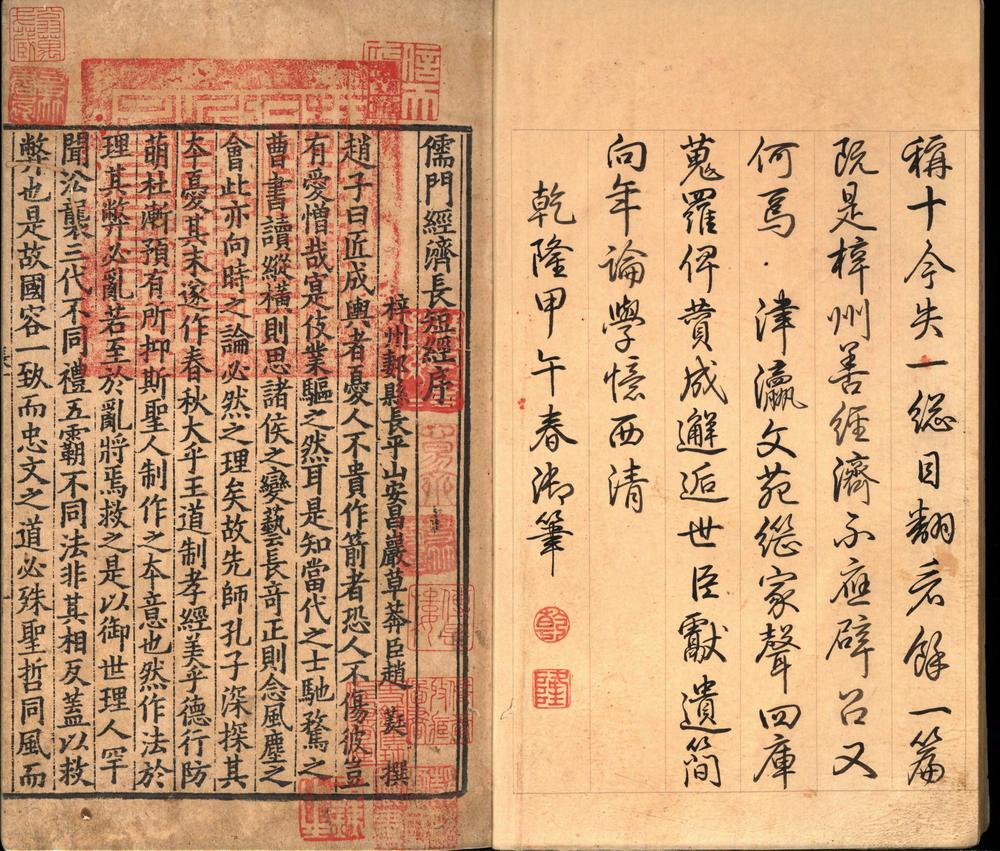 稱十今失一総目翻看餘一篇
既是梓州善經濟不應辟召又
何焉．津瀛文苑総家聲四庫
蒐羅俾費成邂逅世臣獻遺簡
向年論學憶西清
乾隆甲午春御筆
乾
隆
儒門經濟長短經序
梓州郪縣長平山安昌巖草莽臣趙蕤撰
趙子曰匠成輿者憂人不貴作箭者恐人不傷彼豈
有愛憎哉寔伎業驅之然耳是知當代之士馳騖之
曹書讀縱橫則思諸侯之變藝長奇正則念風塵之
會此亦向時之論必然之理矣故先師孔子深探其
夲憂其末遂作春秋大乎王道制孝經美乎德行防
萌杜漸預有所抑斯聖人制作之夲意也然作法於
理其弊必亂若至於亂將焉救之是以御世理人罕
聞沿襲三代不同禮五霸不同法非其相反蓋以救
弊也是故國容一致而忠文之道必殊聖哲同風而